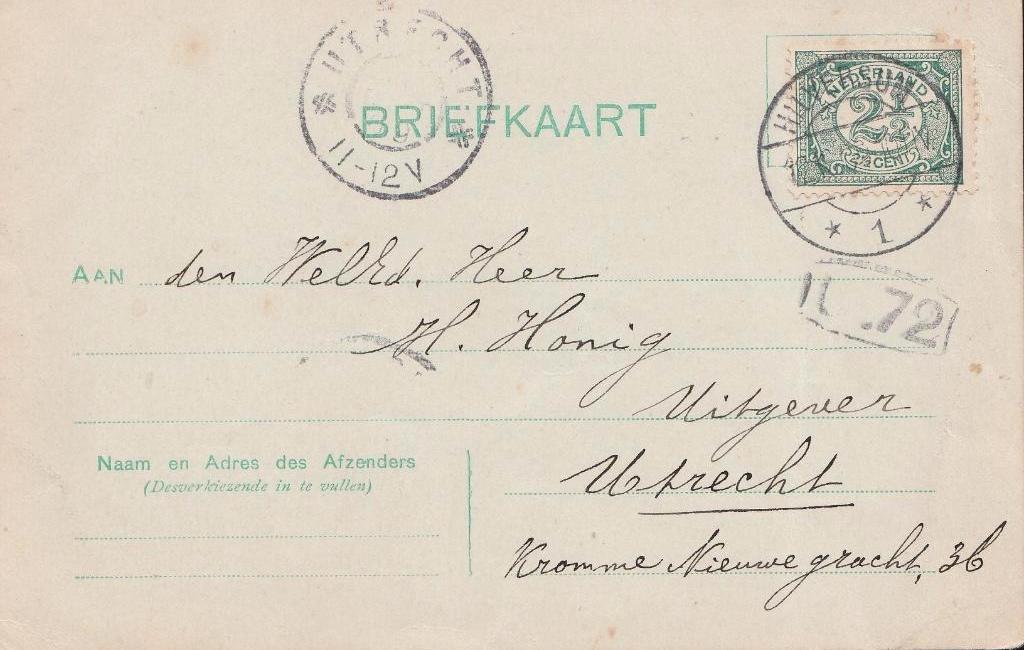 UTRECHT
11-12V
BRIEFKAART
NEDERLAND
2½
2½ CENT
HILVERSUM
1
.72
AAN den WelEd. Heer
H. Honig
Uitgever
Utrecht
Kromme Nieuwe gracht, 36
Naam en Adres des Afzenders
(Desverkiezende in te vullen)